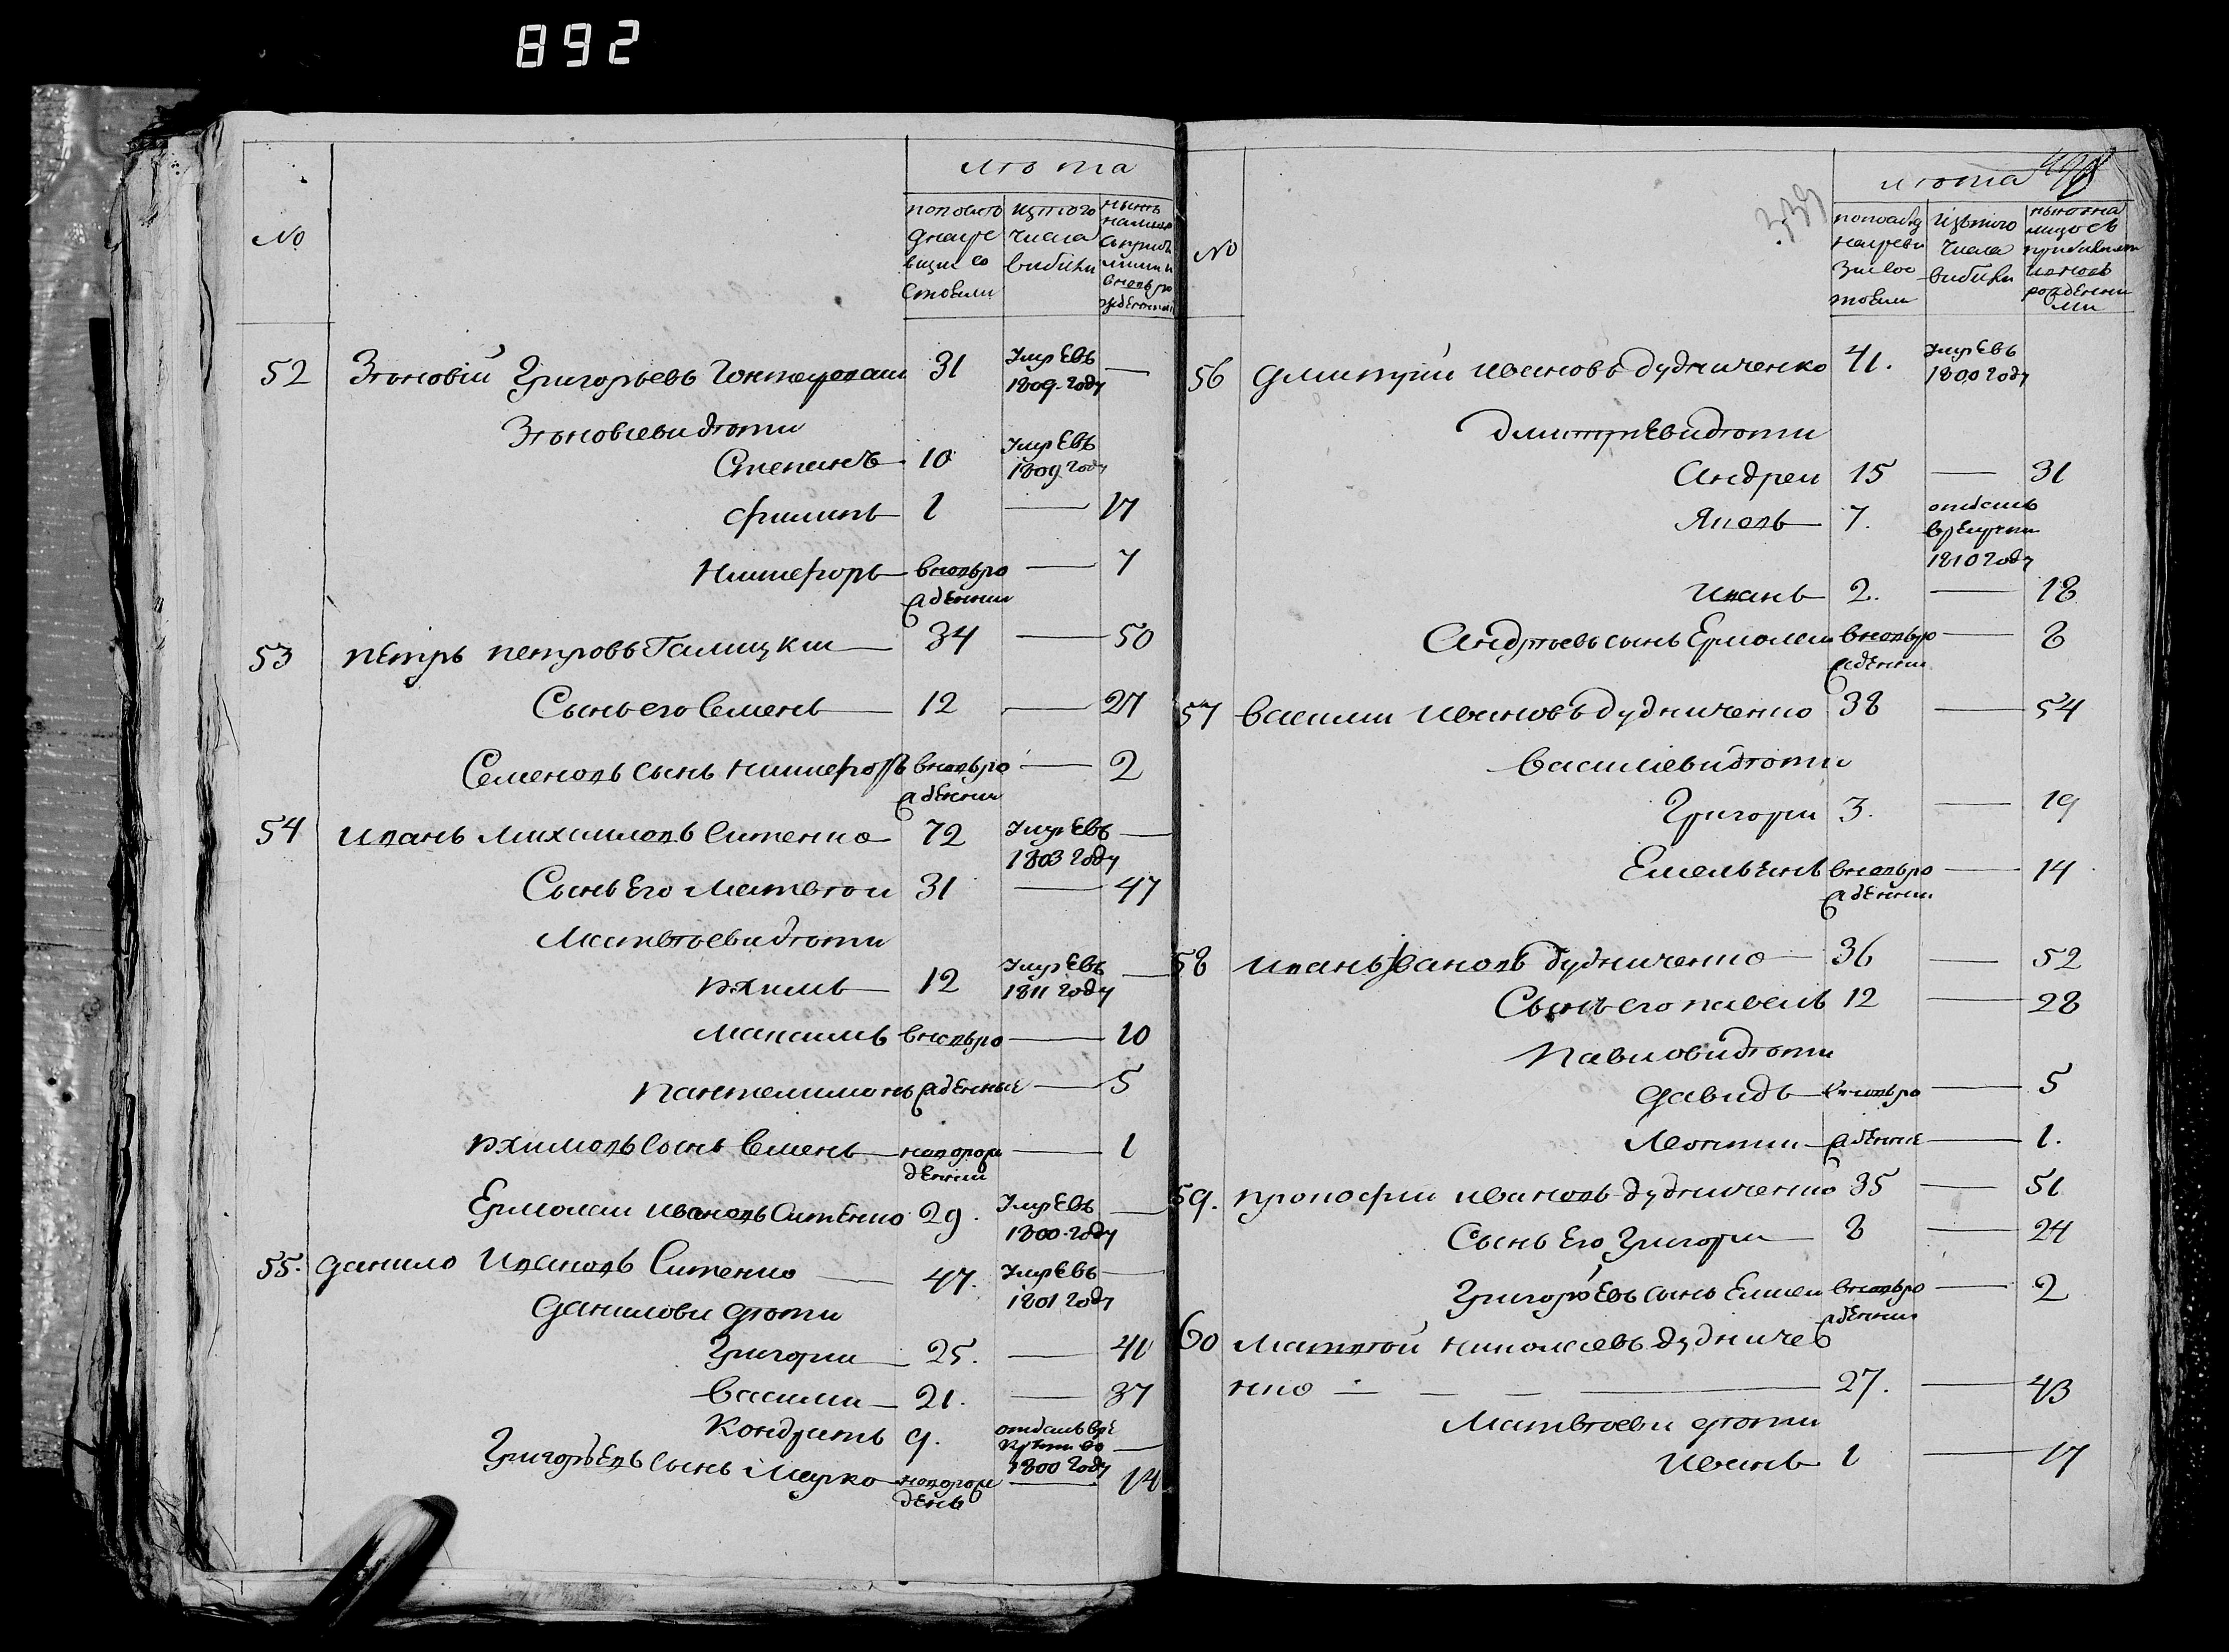 892
лѣта
№
по послѣд
ней ре
визіи со
стояли
изъ того
числа
выбыли
нынѣ
на лицо
52 Зѣновій Григорьевъ 31 умръ Евъ —
1809 году
Зѣновіеви дѣти
Степанъ 10 умръ Евъ
1809 году
Филипъ 1 — 17
Никифоръ вновьро — 7
жденни
53 Петръ Петровъ Галицкии 34 — 50
Сынъ его Семенъ 12 — 27
Семеновъ сынъ Никифоръ вновьро — 2
жденни
54 Иванъ Михаиловъ Ситенко 72 умръ Евъ —
1803 году
Сынъ Его Матвѣи 31 — 47
Матвѣеви дѣти
Яхимъ 12 умръ Евъ —
1811 году
Максимъ вновьро — 10
Пантелимонъ жденные — 5
Яхимовъ сынъ Семенъ новорож — 1
денни
Ермолаи Ивановъ Ситенко 29. умръ Евъ —
1800 году
55. Данило Ивановъ Ситенко — 47. умръ Евъ —
1801 году
Данилови дѣти
Григории 25. — 41
Василии 21. — 37
Кондратъ 9. отданъ врѣ
круты во —
1800 году
Григорьевъ сынъ Марко новорож — 14
денъ
339
лѣта
№
по послѣд
ней реви
зии сос
тояли
изътого
числа
выбыли
56 Дмитрии Ивановъ Дудниченко 41. умръ Евъ
1800 году
Дмитриеви дѣти
Андреи 15 — 31
Яковъ 7. отданъ
врекруты
1810 году
Иванъ 2. — 18
Андрѣевъ сынъ Ермолаи вновьро — 8
жденни
57 Василии Ивановъ Дудниченко 38 — 54
Василіеви дѣти
Григории 3. — 19
Емельянъ вновьро — 14
жденни
58 Иванъ Ивановъ Дудниченко — 36 — 52
Сынъ его Павелъ 12 — 28
Павлови дѣти
Давидъ вновьро — 5
Леонтии жденые — 1.
59. Прокофии Ивановъ Дудниченко 35 — 51
Сынъ Его Григории 8 — 24
Григорьевъ сынъ Елисеи вновьро — 2
жденни
60 Матвѣй Николаевъ Дудниче
нко — — — — 27. — 43
Матвѣеви дѣти
Иванъ 1 — 17